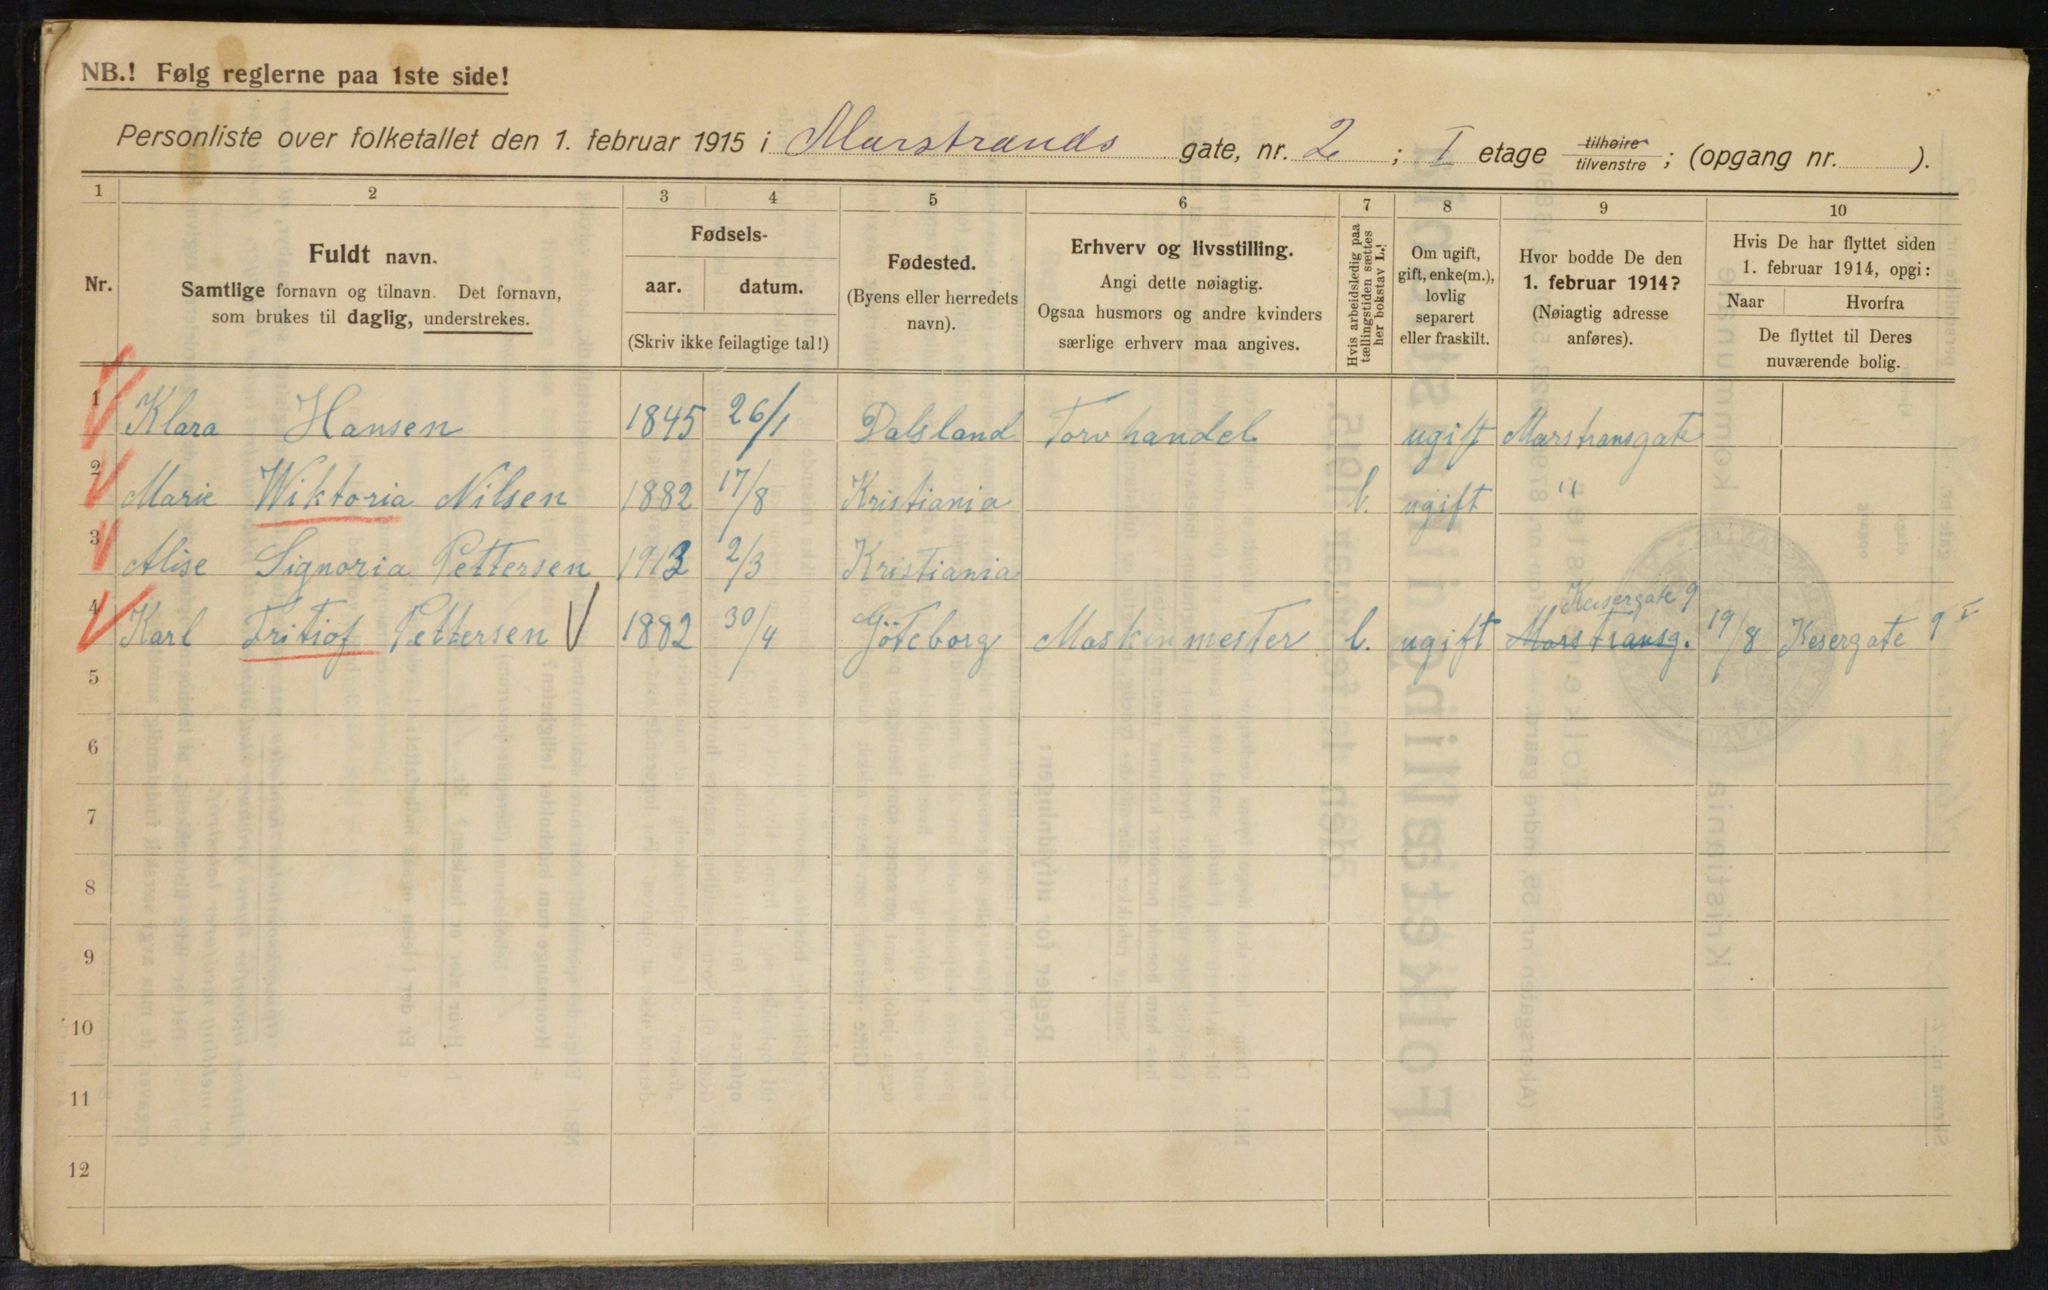 NB.! Følg reglerne paa 1ste side!
Personliste over folketallet den 1. februar 1915 i Marstrands gate, nr. 2 ; I etage tilhøire tilvenstre ; (opgang nr. ).
1 2 3 4 5 6 7 8 9 10
Nr.
Fuldt navn.
Samtlige fornavn og tilnavn. Det fornavn,
som brukes til daglig, understrekes.
Fødsels-
aar. datum.
(Skriv ikke feilagtige tal!)
Fødested.
(Byens eller herredets
navn).
Erhverv og livsstilling.
Angi dette nøiagtig.
Ogsaa husmors og andre kvinders
særlige erhverv maa angives.
Hvis arbeidsledig paa
tællingstiden sættes
her bokstav L.!
Om ugift,
gift, enke(m.),
lovlig
separert
eller fraskilt.
Hvor bodde De den
1. februar 1914?
(Nøiagtig adresse
anføres).
Hvis De har flyttet siden
1. februar 1914, opgi:
Naar Hvorfra
De flyttet til Deres
nuværende bolig.
1 Klara Hansen 1845 26/1 Dalsland Torvhandel ugift Marstransgate
2 Marie Wiktoria Nilsen 1882 17/8 Kristiania l. ugift "
3 Alise Signoria Pettersen 1913 2/3 Kristiania
Keisergate 9
4 Karl Fritiof Pettersen 1882 30/4 Göteborg Maskinmester l. ugift Marstransg. 19/8 Kesergate 9 I
5
6
7
8
9
10
11
12